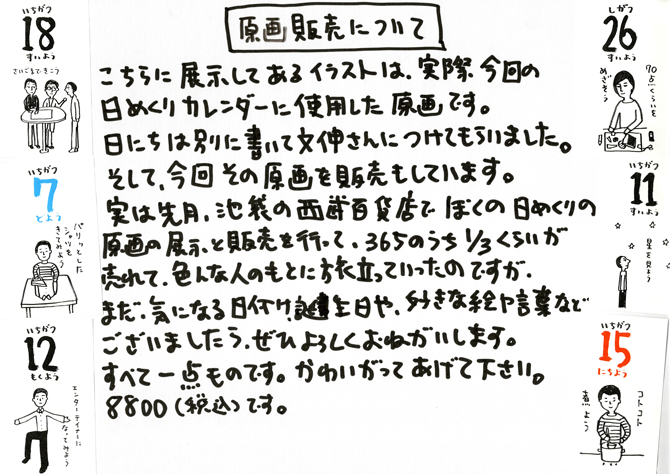 原画販売について
こちらに展示してあるイラストは、実際今回の
日めくりカレンダーに使用した原画です。
日にちは別に書いて文伸さんにつけてもらいました。
そして、今回その原画を販売もしています。
実は先月、池袋の西武百貨店でぼくの日めくりの
原画の展示と販売を行って、365のうち1/3くらいが
売れて、色んな人のもとに旅立っていったのですが、
まだ、気になる日付け、誕生日や、好きな絵や言葉など
ございましたら、ぜひよろしくおねがいします。
すべて一点ものです。かわいがってあげて下さい。
8800(税込)です。
いちがつ
18
すいよう
さいごまできこう
いちがつ
7
どよう
パリッとした
シャツを
きてみよう
いちがつ
12
もくよう
エンターテイナーに
なってみよう
しがつ
26
すいよう
70点くらいを
めざそう
いちがつ
11
すいよう
星を見よう
いちがつ
15
にちよう
コトコト
煮よう